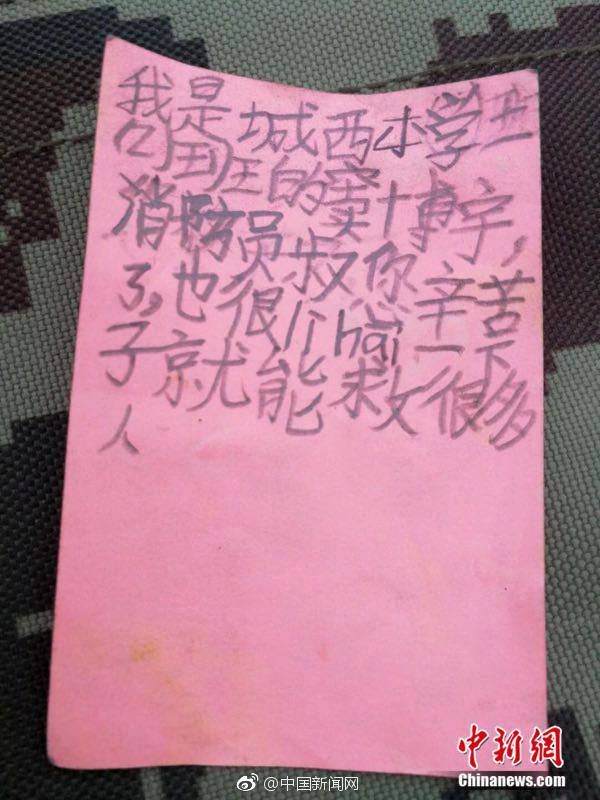 我是城西小学
班的窦博宇，
消防员叔您辛苦
了，也很li hai一下
子就能救很多
人
中新网
Chinanews.com
@中国新闻网